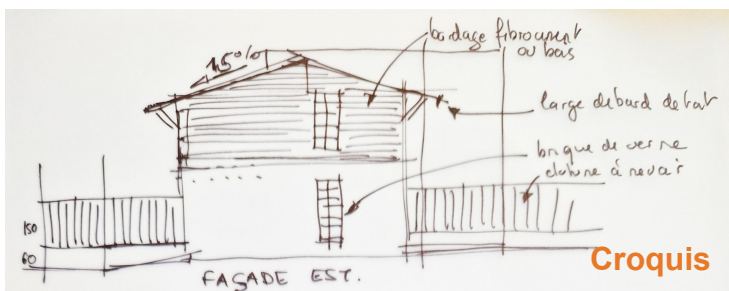 bordage fibrociment
ou bois
45%
large débord de toit
brique de verre
cloture à revoir
150
60
FAÇADE EST.
Croquis